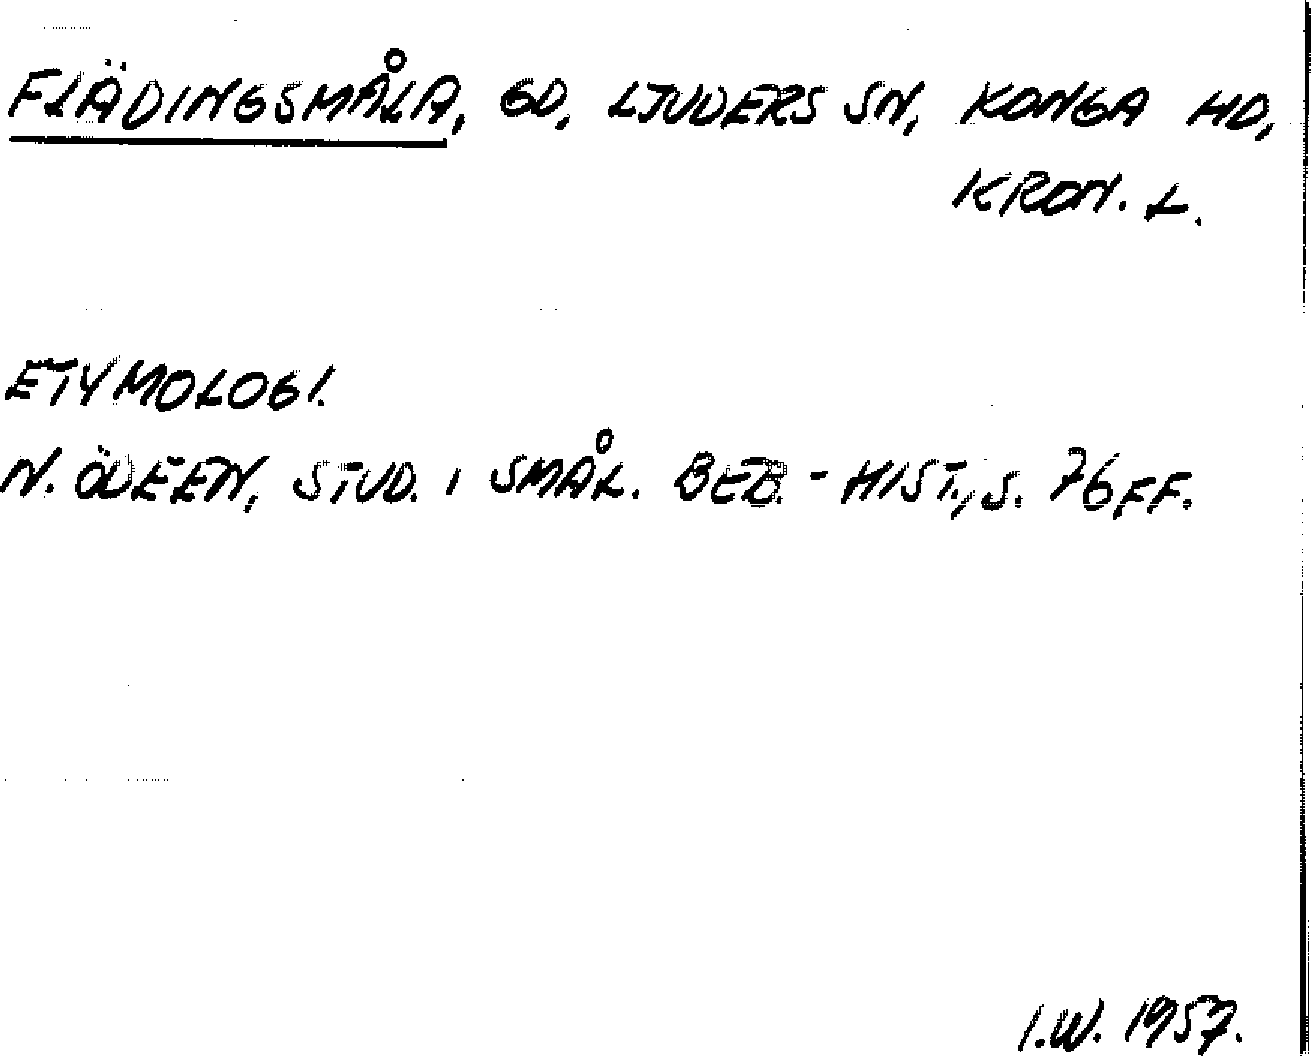 FLÄDINGSMÅLA, GD, LJUDERS SN, KONGA HD,
KRON. L.
ETYMOLOGI.
N. ÖDEEN, STUD. I SMÅL. BEB.-HIST., S. 76 FF.
I.W. 1957.